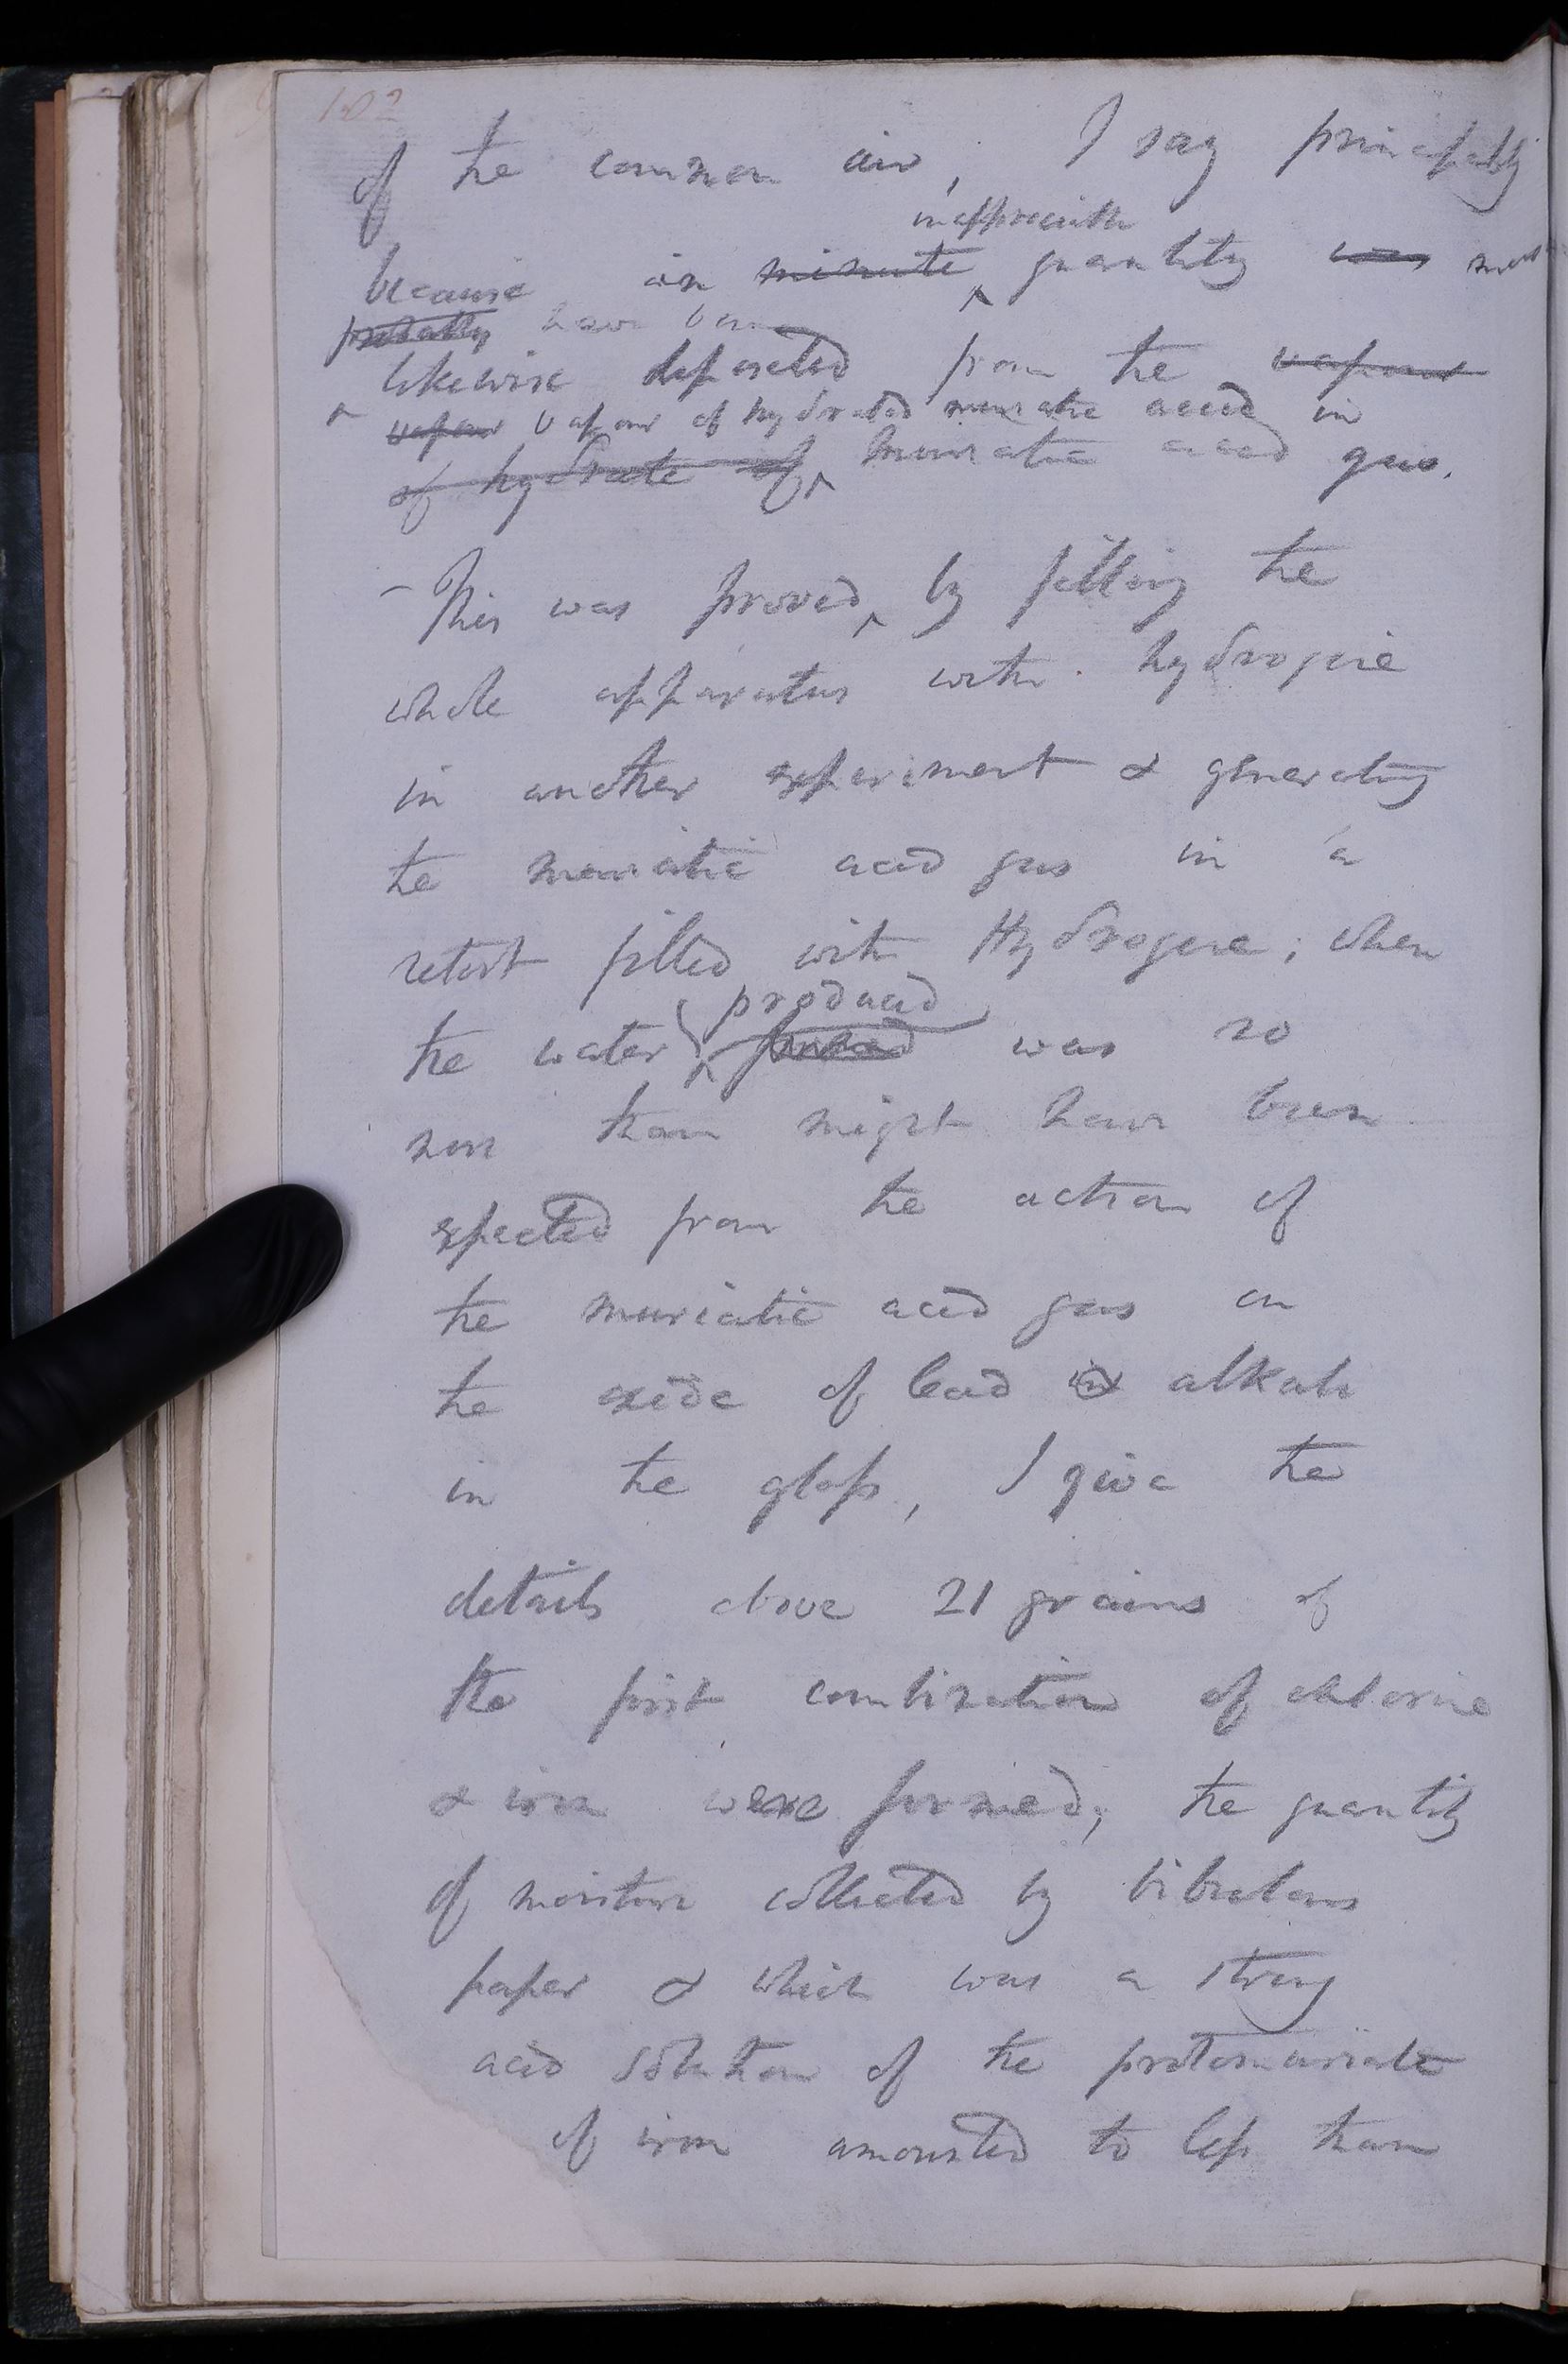 102
of the common air, I say principally
inappreciable
because in minute quantity was must
probably have been
likewise deposited from the vapour
vapour vapour of hydrated muriatic acid in
of hydrate of muriatic acid gas.
- This was proved by filling the
whole apparatus with hydrogene
in another experiment & generating
the muriatic acid gas in a
retort filled with Hydrogene; when
produced
the water formed was no
more than might have been
expected from the action of
the muriatic acid gas on
the oxide of lead & alkali
in the glass, I give the
details above 21 grains of
the first combination of chlorine
& iron were formed; the quantity
of moisture collected by bibulous
paper & which was a strong
acid solution of the protomuriate
of iron amounted to less than